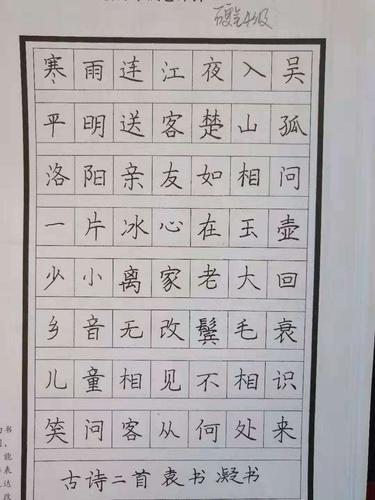 硬笔4级
寒雨连江夜入吴
平明送客楚山孤
洛阳亲友如相问
一片冰心在玉壶
少小离家老大回
乡音无改鬓毛衰
儿童相见不相识
笑问客从何处来
古诗二首 袁书凝书